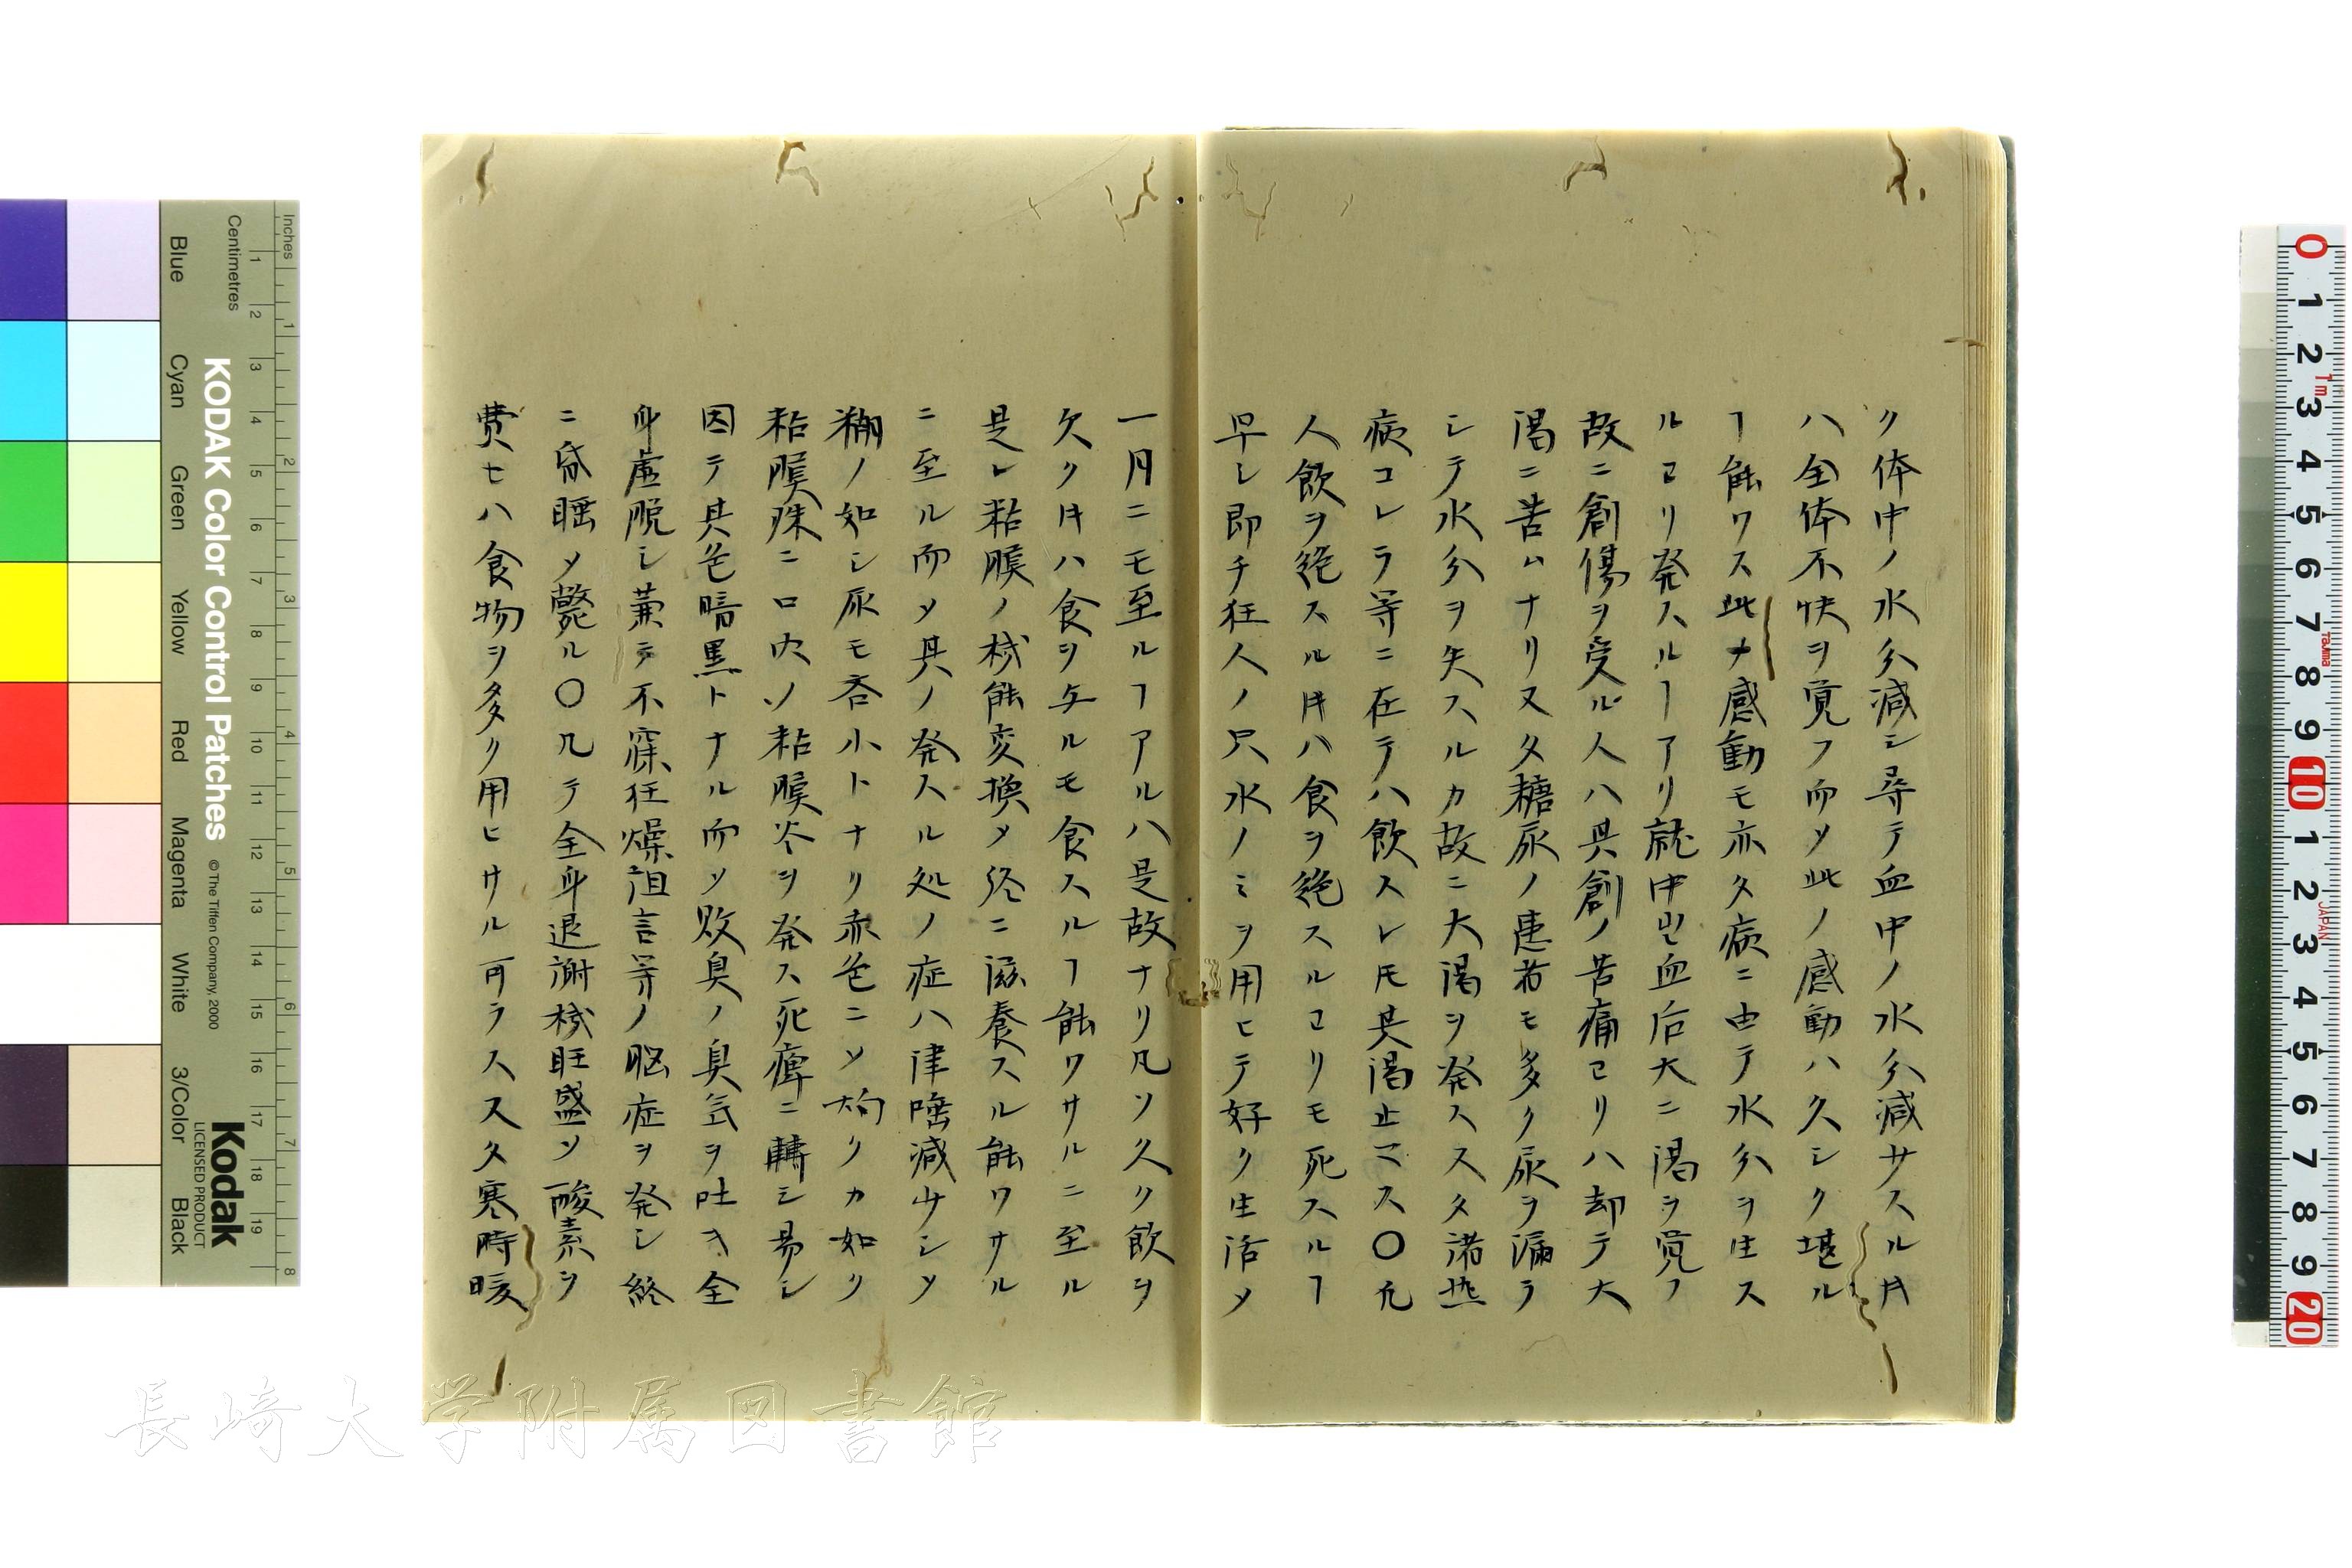 ク体中ノ水分減シ尋テ血中ノ水分減サスル𪜈
ハ全体不快ヲ覚フ而〆此ノ感動ハ久シク堪ル
ヿ能ワス此ナ感動モ亦タ病ニ由テ水分ヲ生ス
ルヿリ発スルーアリ就中血后大ニ渇ヲ覚フ
故ニ創傷ヲ受ル人ハ其創ノ苦痛ヨリハ却テ大
渇ニ苦ムナリ又タ糖尿ノ患者モ多ク尿ヲ漏ラ
シテ水分ヲ失スルカ故ニ大渇ヲ発ススタ諸熱
病コレラ等ニ在テハ飲スレ𪜈其渇止マス〇凡
人飲ヲ絶スル𪜈ハ食ヲ絶スルヨリモ死スルヿ
早シ即チ狂人ノ只水ノミヲ用ヒテ好ク生活〆
一月ニモ至ルヿアルハ是故ナリ凡ソ久ク飲ヲ
欠ク𪜈ハ食ヲ与ルモ食スルヿ能ワサルニ至ル
是レ粘膜ノ機能変換〆終ニ滋養スル能ワサル
ニ至ル而〆其ノ発スル処ノ症ハ津唾減少シ〆
糊ノ如シ尿モ吝小トナリ赤色ニソ灼クカ如ク
粘膜殊ニ口内ノ粘膜炎ヲ発ス死痺ニ轉シ易シ
因テ其色暗黒トナル而ソ敗臭ノ臭気ヲ吐キ全
身虚脱シ兼テ不寐狂燥詛言等ノ脳症ヲ発シ終
ニ昏睡〆斃ル〇凡テ全身退謝機旺盛ソ酸素ヲ
費セハ食物ヲ多ク用ヒサル可ラススタ寒時暖
KODAK Color Control Patches
© The Tiffen Company, 2000
Kodak
LICENSED PRODUCT
Inches
Centimetres
Blue
Cyan
Green
Yellow
Red
Magenta
White
3/Color
Black
長崎大学附属図書館